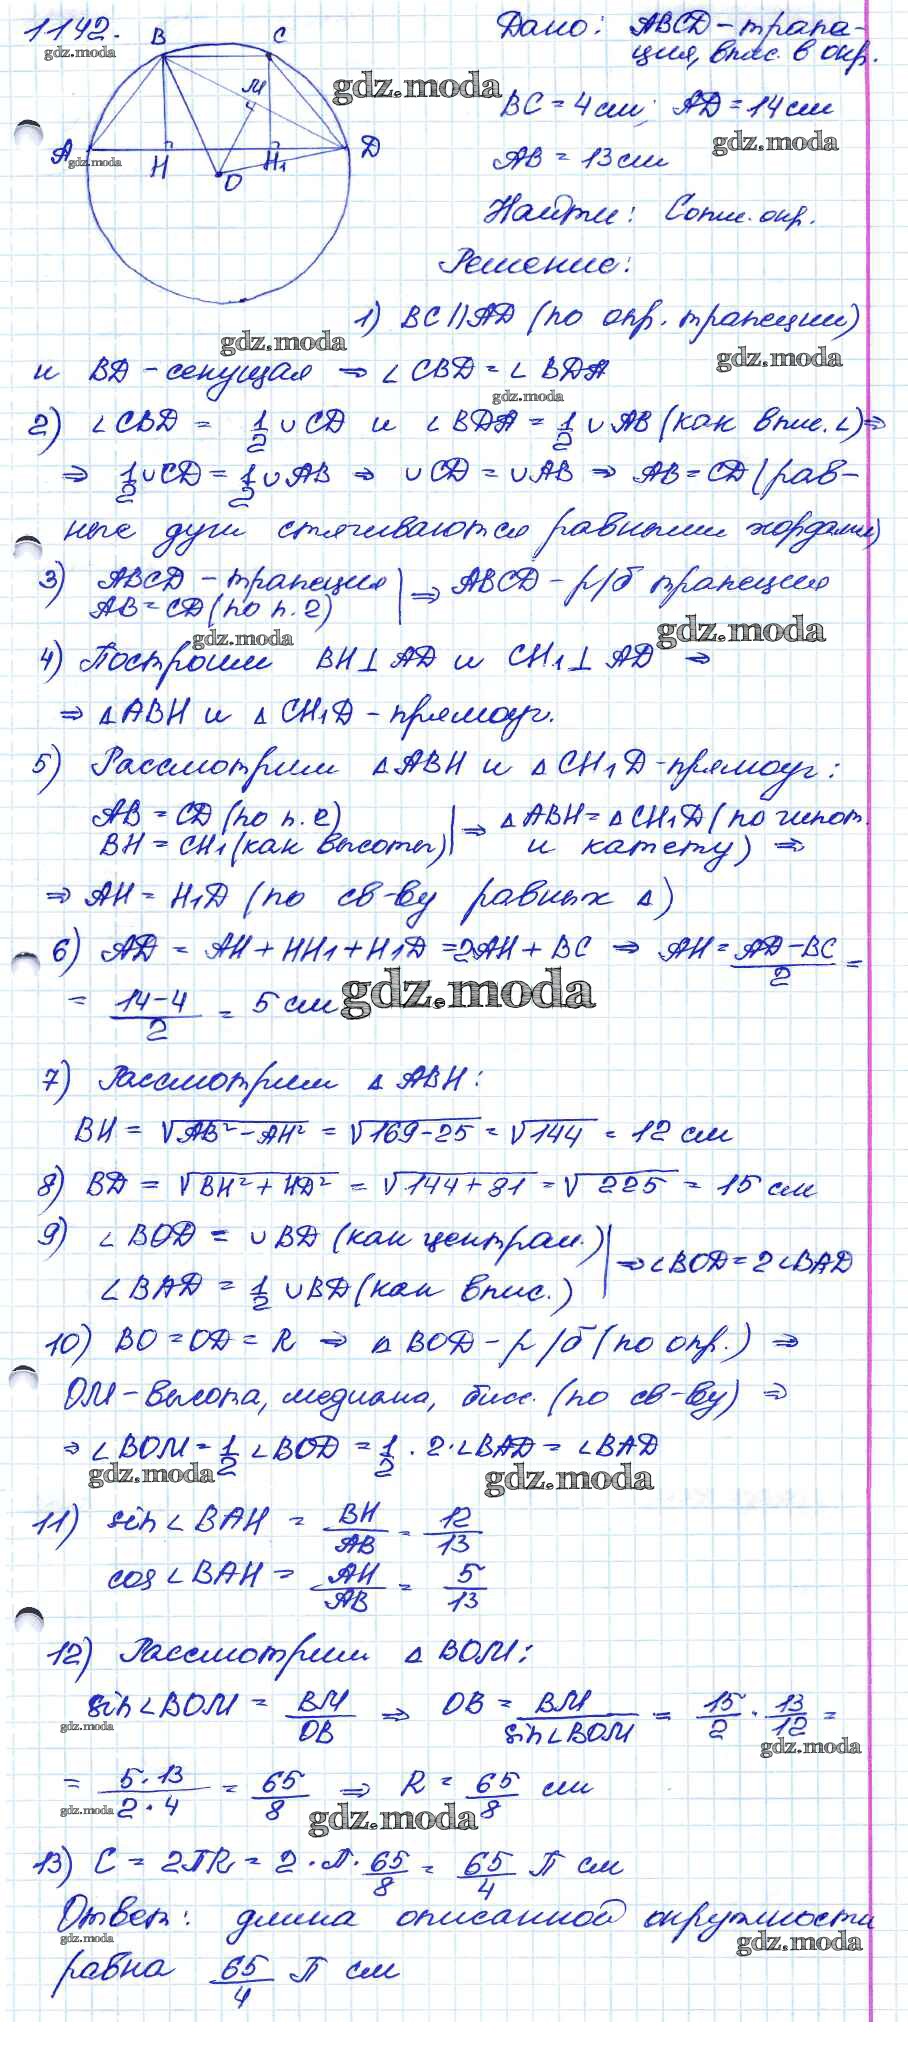 1142.
gdz.moda
B C
M
A H O H₁ D
gdz.moda
gdz.moda
Дано: ABCD - трапе-
ция, впис. в окр.
BC = 4 см; AD = 14 см
gdz.moda
AB = 13 см
Найти: Cопис. окр.
Решение:
1) BC || AD (по опр. трапеции)
gdz.moda gdz.moda
и BD - секущая ⇒ ∠CBD = ∠BDA
gdz.moda
2) ∠CBD = 1/2 ∪CD и ∠BDA = 1/2 ∪AB (как впис. ∠) ⇒
⇒ 1/2 ∪CD = 1/2 ∪AB ⇒ ∪CD = ∪AB ⇒ AB = CD (рав-
ные дуги стягиваются равными хордами)
3) ABCD - трапеция
AB = CD (по п. 2) | ⇒ ABCD - р/б трапеция
gdz.moda gdz.moda
4) Построим BH ⊥ AD и CH₁ ⊥ AD ⇒
⇒ △ABH и △CH₁D - прямоуг.
5) Рассмотрим △ABH и △CH₁D - прямоуг:
AB = CD (по п. 2) | ⇒ △ABH = △CH₁D (по гипот.
BH = CH₁ (как высоты) | и катету) ⇒
⇒ AH = H₁D (по св-ву равных △)
6) AD = AH + HH₁ + H₁D = 2AH + BC ⇒ AH = (AD - BC)/2 =
= (14-4)/2 = 5 см
gdz.moda
7) Рассмотрим △ABH:
BH = √(AB² - AH²) = √(169 - 25) = √144 = 12 см
8) BD = √(BH² + HD²) = √(144 + 81) = √225 = 15 см
9) ∠BOD = ∪BD (как централ.) | ⇒ ∠BOD = 2∠BAD
∠BAD = 1/2 ∪BD (как впис.) |
10) BO = OD = R ⇒ △BOD - р/б (по опр.) ⇒
OM - высота, медиана, бисс. (по св-ву) ⇒
⇒ ∠BOM = 1/2 ∠BOD = 1/2 · 2 · ∠BAD = ∠BAD
gdz.moda gdz.moda
11) sin∠BAH = BH/AB = 12/13
cos∠BAH = AH/AB = 5/13
12) Рассмотрим △BOM:
sin∠BOM = BM/OB ⇒ OB = BM/sin∠BOM = 15/2 · 13/12 =
gdz.moda gdz.moda
= (5 · 13)/(2 · 4) = 65/8 ⇒ R = 65/8 см
gdz.moda gdz.moda
13) C = 2πR = 2 · π · 65/8 = 65/4 π см
Ответ: длина описанной окружности
gdz.moda gdz.moda
равна 65/4 π см